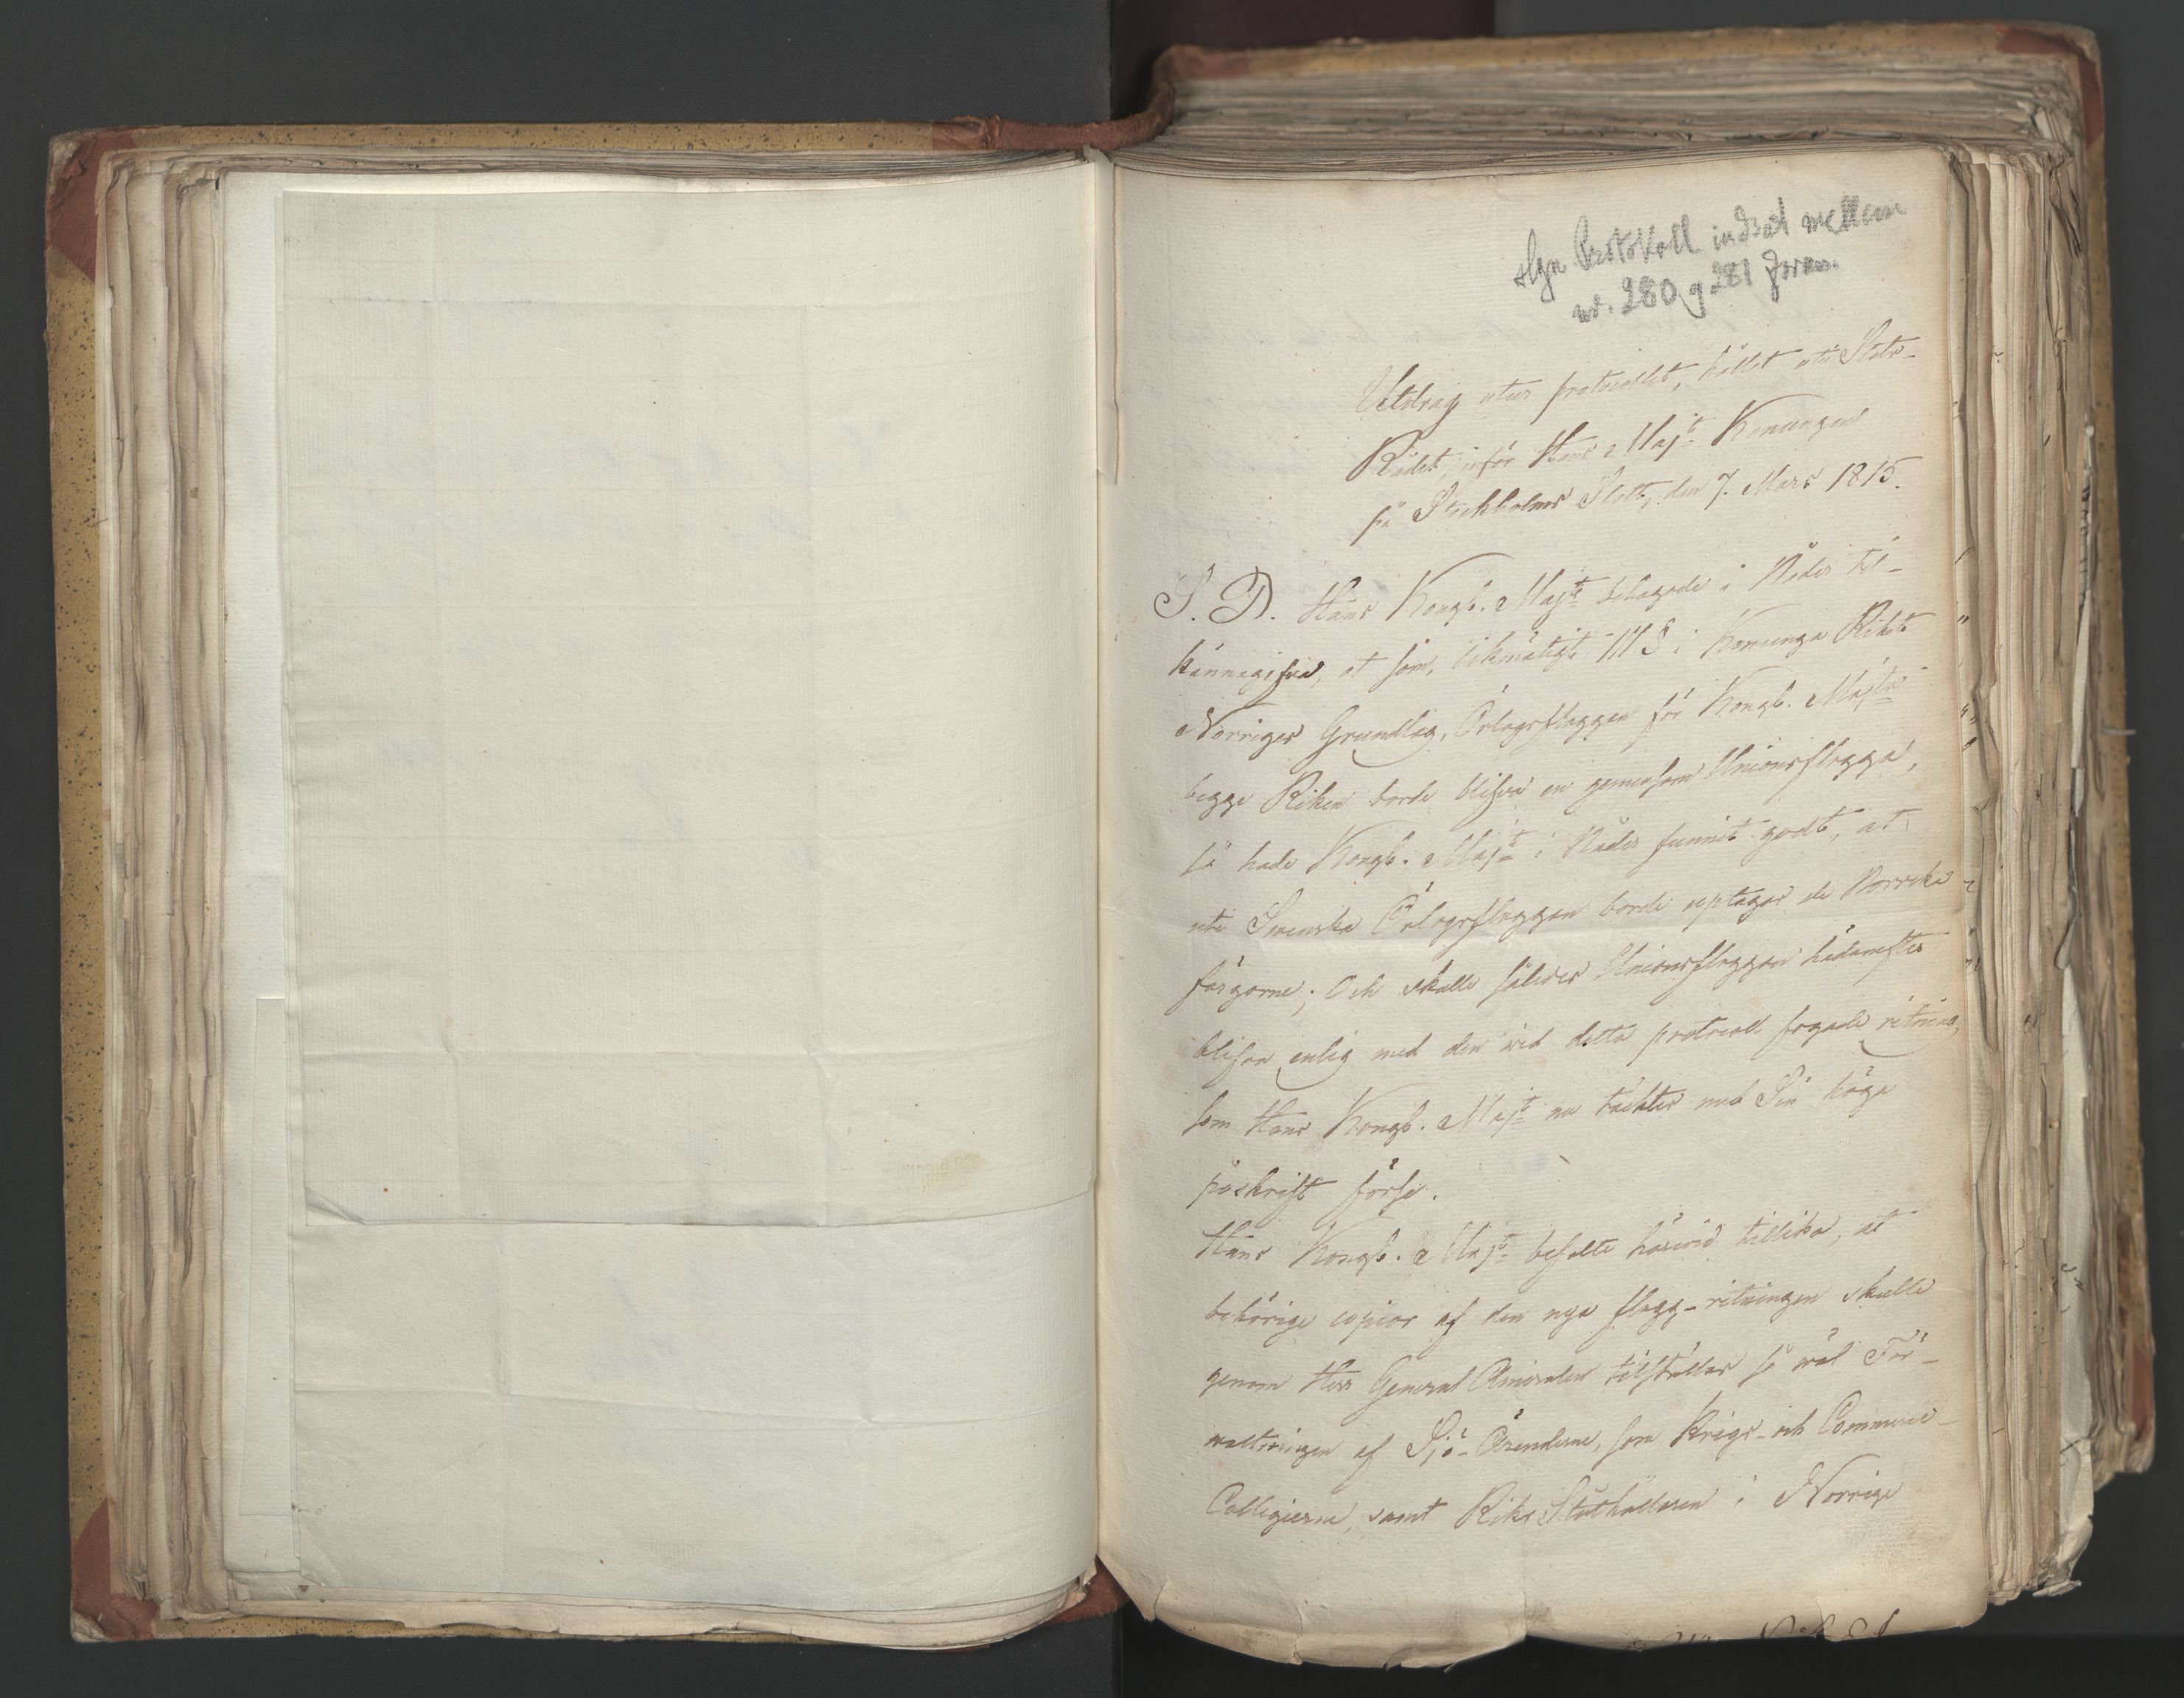 Protokoll indsat mellem
nr. 280 g 281 foran.
Utdrag utur protocollet, hållet uti Stats-
Rådet, inför Hans Majt Konungen
på Stockholms Slott, den 7. Mars 1815.
S. D. Hans Kongl. Majt behagade i Nåder til-
kännagifva, at som, likmätigt 111 § i Konunga Rikets
Norriges Grundlag, Örlogsflaggan för Kongl. Majts
begge Riken borde blifva en gemensam Unionsflagga,
så hade Kongl. Majt i Nåder funnit godt, at
uti Svenska Örlogsflaggan borde uptagas de Norrska
färgorne; Och skulle således Unionsflaggan hädanefter
blifva enlig med den wid detta protocoll fogade ritning,
som Hans Kongl. Majt nu täcktes med Sin höga
påskrift förse.
Hans Kongl. Majt befalte härwid tillika, at
behörige copior af den nya flagg-ritningen skulle
genom Herr General Amiralen tilställas så wäl För-
waltningen af Sjö-Ärenderne, som Krigs- och Commerce-
Collegierne, samt Riks Ståthållaren i Norrige